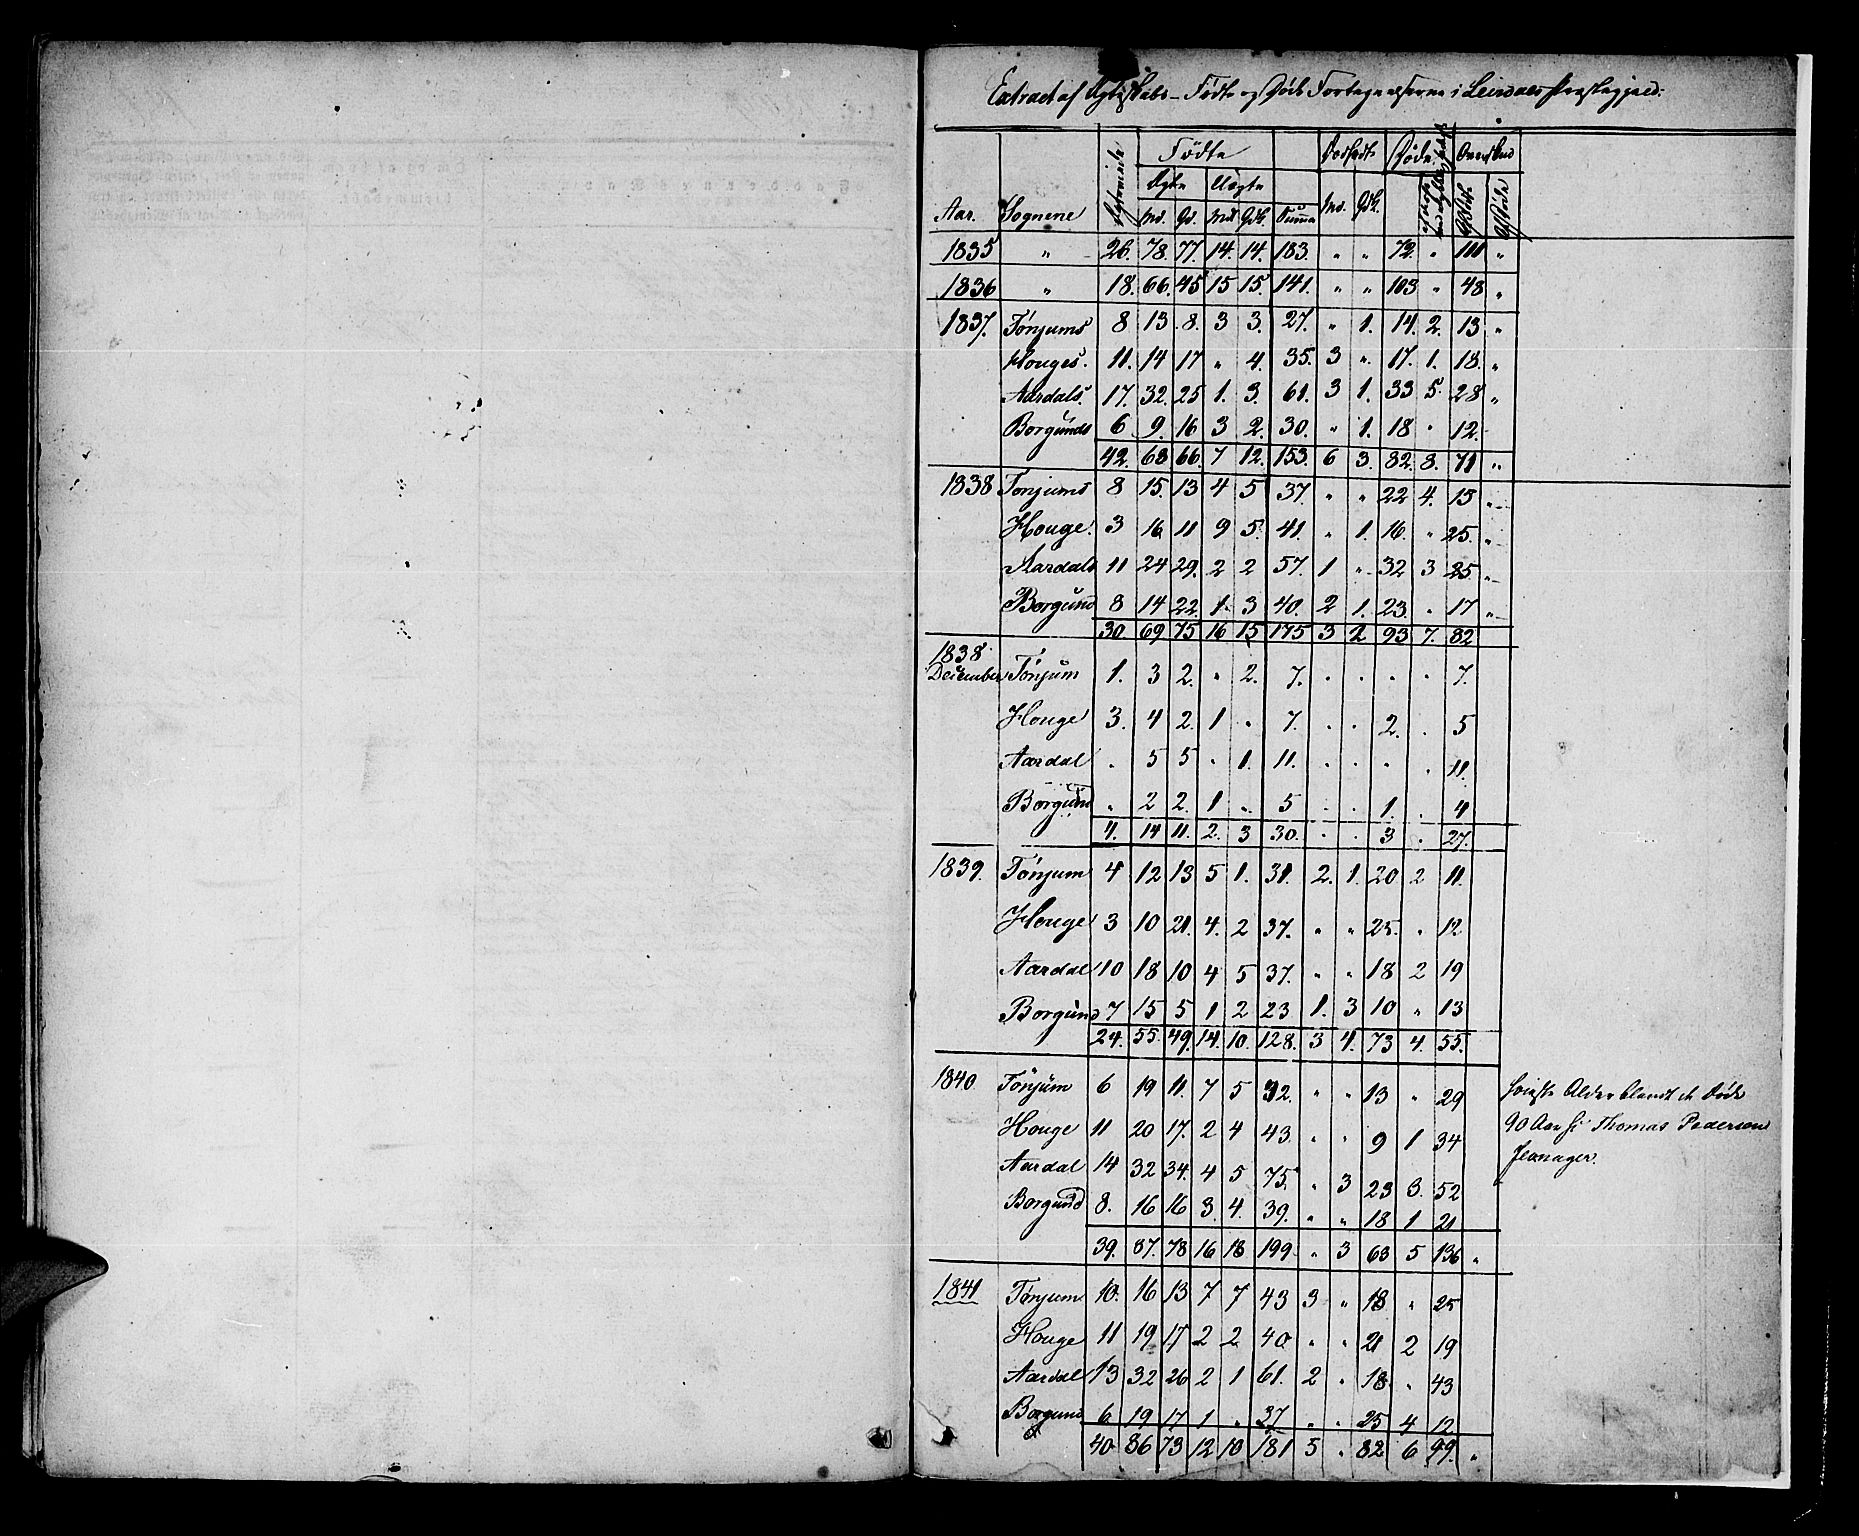 Extract af Ægteskabs- Fødte og Døde Fortegnelserne i Leirdals Præstegjeld:
Fødte Dødfødte Døde Overskud
Ægte Uægte
Aar. Sognene Md. Qd. Md. Qdk. Summa Md. Qdk.
1835 " 26. 78. 77. 14. 14. 183. " " 72. " 111 "
1836 " 18. 66. 45 15 15. 141. " " 103 " 48 "
1837. Tönjums 8 13. 8. 3 3. 27. " 1. 14. 2. 13 "
Houges. 11. 14 17 " 4. 35. 3 ". 17. 1. 18. "
Aardals. 17. 32. 25 1. 3. 61. 3 1. 33 5. 28 "
Borgunds 6 9. 16 3 2. 30. " 1. 18 " 12.
42. 68 66. 7 12. 153. 6 3. 82. 8. 71 "
1838 Tonjums 8 15. 13 4 5 37. " " 22 4. 15 "
Houge. 3 16 11 9 5. 41. " 1. 16. " 25. "
Aardals 11 24 29. 2 2 57. 1 " 32 3 25. "
Borgund 8 14 22. 1. 3 40. 2 1. 23. " 17 "
30. 69 75 16 15 175 3 2 93 7. 82
1838
December Tönjum 1. 3 2. " 2. 7. . . . . 7.
Houge 3. 4 2. 1 . 7. . . 2. . 5
Aardal . 5 5 . 1. 11. . . . . 11.
Borgund . 2 2. 1 . 5 . . 1. . 4
4. 14 11. 2. 3 30. . . 3 . 27.
1839. Tönjum 4 12 13 5 1. 31. 2. 1. 20 2 11.
Houge 3 10 21. 4. 2 37. " " 25. " 12
Aardal 10 18 10 4 5 37. " " 18 2 19
Borgund 7 15 5 1 2 23 1. 3 10 " 13
24. 55. 49. 14. 10. 128. 3 4. 73 4. 55.
1840 Tönjum 6 19 11. 7 5 32. " " 13 " 29 høieste Alder blandt de Døde
Houge 11 20 17. 2 4 43. " " 9 1 34 90 Aar Thomas Pedersen
Aardal 14 32 34. 4 5 75. " 3 23 3. 52
Borgund 8. 16 16 3. 4. 39. " " 18 1 21
39. 87. 78 16 18 199. " 3 63 5 136 "
1841 Tönjum 10. 16 13 7 7 43 3 " 18 " 25
Houge 11 19 17. 2 2. 40. " " 21 2 19
Aardal 13 32 26 2 1 61. 2 " 18. " 43
Borgund 6 19 17 1 " 37 " " 25 4 12
40 86 73 12 10 181 5 " 82 6 99. "